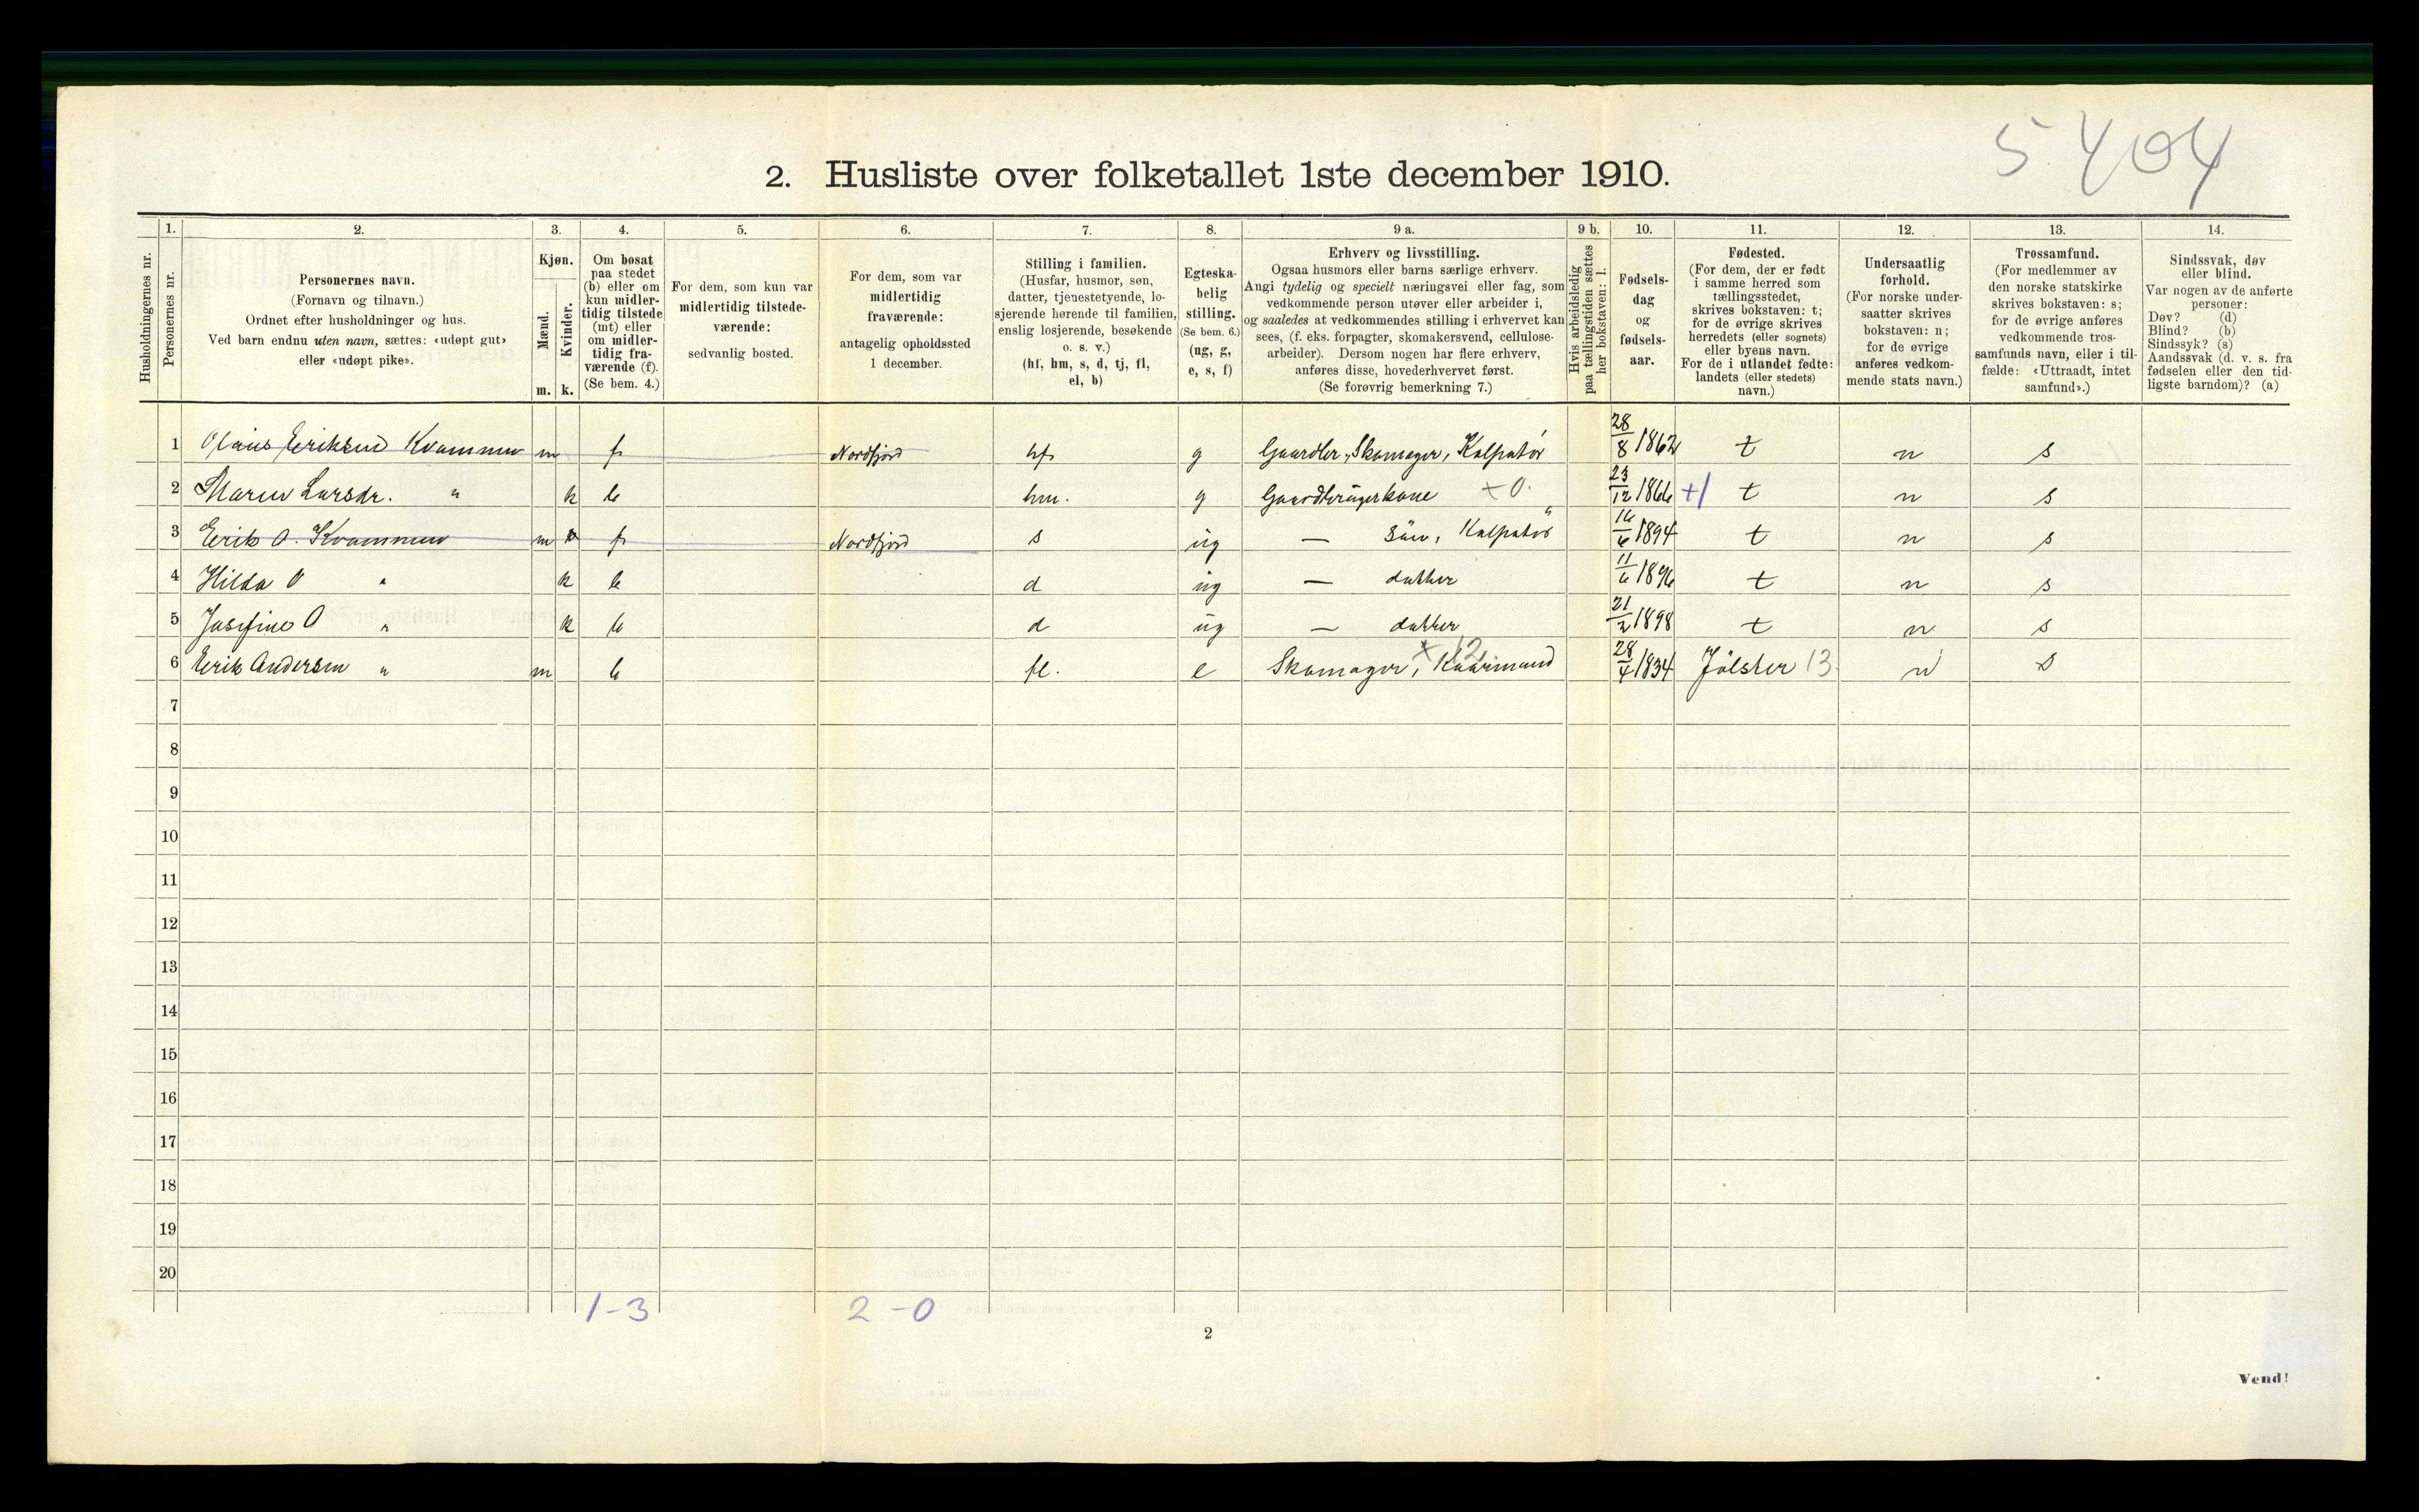 5404
2. Husliste over folketallet 1ste december 1910.
Husholdningernes nr.
1.
Personernes nr.
2.
Personernes navn.
(Fornavn og tilnavn.)
Ordnet efter husholdninger og hus.
Ved barn endnu uten navn, sættes: «udøpt gut»
eller «udøpt pike».
3.
Kjøn.
Mænd.
Kvinder.
m. k.
4.
Om bosat
paa stedet
(b) eller om
kun midler-
tidig tilstede
(mt) eller
om midler-
tidig fra-
værende (f).
(Se bem. 4.)
5.
For dem, som kun var
midlertidig tilstede-
værende:
sedvanlig bosted.
6.
For dem, som var
midlertidig
fraværende:
antagelig opholdssted
1 december.
7.
Stilling i familien.
(Husfar, husmor, søn,
datter, tjenestetyende, lo-
sjerende hørende til familien,
enslig losjerende, besøkende
o. s. v.)
(hf, hm, s, d, tj, fl,
el, b)
8.
Egteska-
belig
stilling.
(Se bem. 6.)
(ug, g,
e, s, f)
9 a.
Erhverv og livsstilling.
Ogsaa husmors eller barns særlige erhverv.
Angi tydelig og specielt næringsvei eller fag, som
vedkommende person utøver eller arbeider i,
og saaledes at vedkommendes stilling i erhvervet kan
sees, (f. eks. forpagter, skomakersvend, cellulose-
arbeider). Dersom nogen har flere erhverv,
anføres disse, hovederhvervet først.
(Se forøvrig bemerkning 7.)
9 b.
Hvis arbeidsledig
paa tællingstiden sættes
her bokstaven: l.
10.
Fødsels-
dag
og
fødsels-
aar.
11.
Fødested.
(For dem, der er født
i samme herred som
tællingsstedet,
skrives bokstaven: t;
for de øvrige skrives
herredets (eller sognets)
eller byens navn.
For de i utlandet fødte:
landets (eller stedets)
navn.)
12.
Undersaatlig
forhold.
(For norske under-
saatter skrives
bokstaven: n;
for de øvrige
anføres vedkom-
mende stats navn.)
13.
Trossamfund.
(For medlemmer av
den norske statskirke
skrives bokstaven: s;
for de øvrige anføres
vedkommende tros-
samfunds navn, eller i til-
fælde: «Uttraadt, intet
samfund».)
14.
Sindssvak, døv
eller blind.
Var nogen av de anførte
personer:
Døv? (d)
Blind? (b)
Sindssyk? (s)
Aandssvak (d. v. s. fra
fødselen eller den tid-
ligste barndom)? (a)
1 Olaus Eriksen Kvammen m f Nordfjord hf g Skomager, Kolpatør 28/8 1862 t n s
2 Maren Larsdr. " k b hm. g Gaardbrugerkone +0. 23/12 1866 +1 t n s
3 Erik O. Kvammen m f Nordfjord s ug — søn, Kolpatør 16/6 1894 t n s
4 Hilda O " k b d ug — datter 11/6 1896 t n s
5 Josefine O " k b d ug — datter 21/2 1898 t n s
6 Erik Andersen " m b fl. e Skomager, Kaarmand + 12 28/4 1834 Jölster 13 n s
7
8
9
10
11
12
13
14
15
16
17
18
19
20
1-3 2-0
2
Vend!